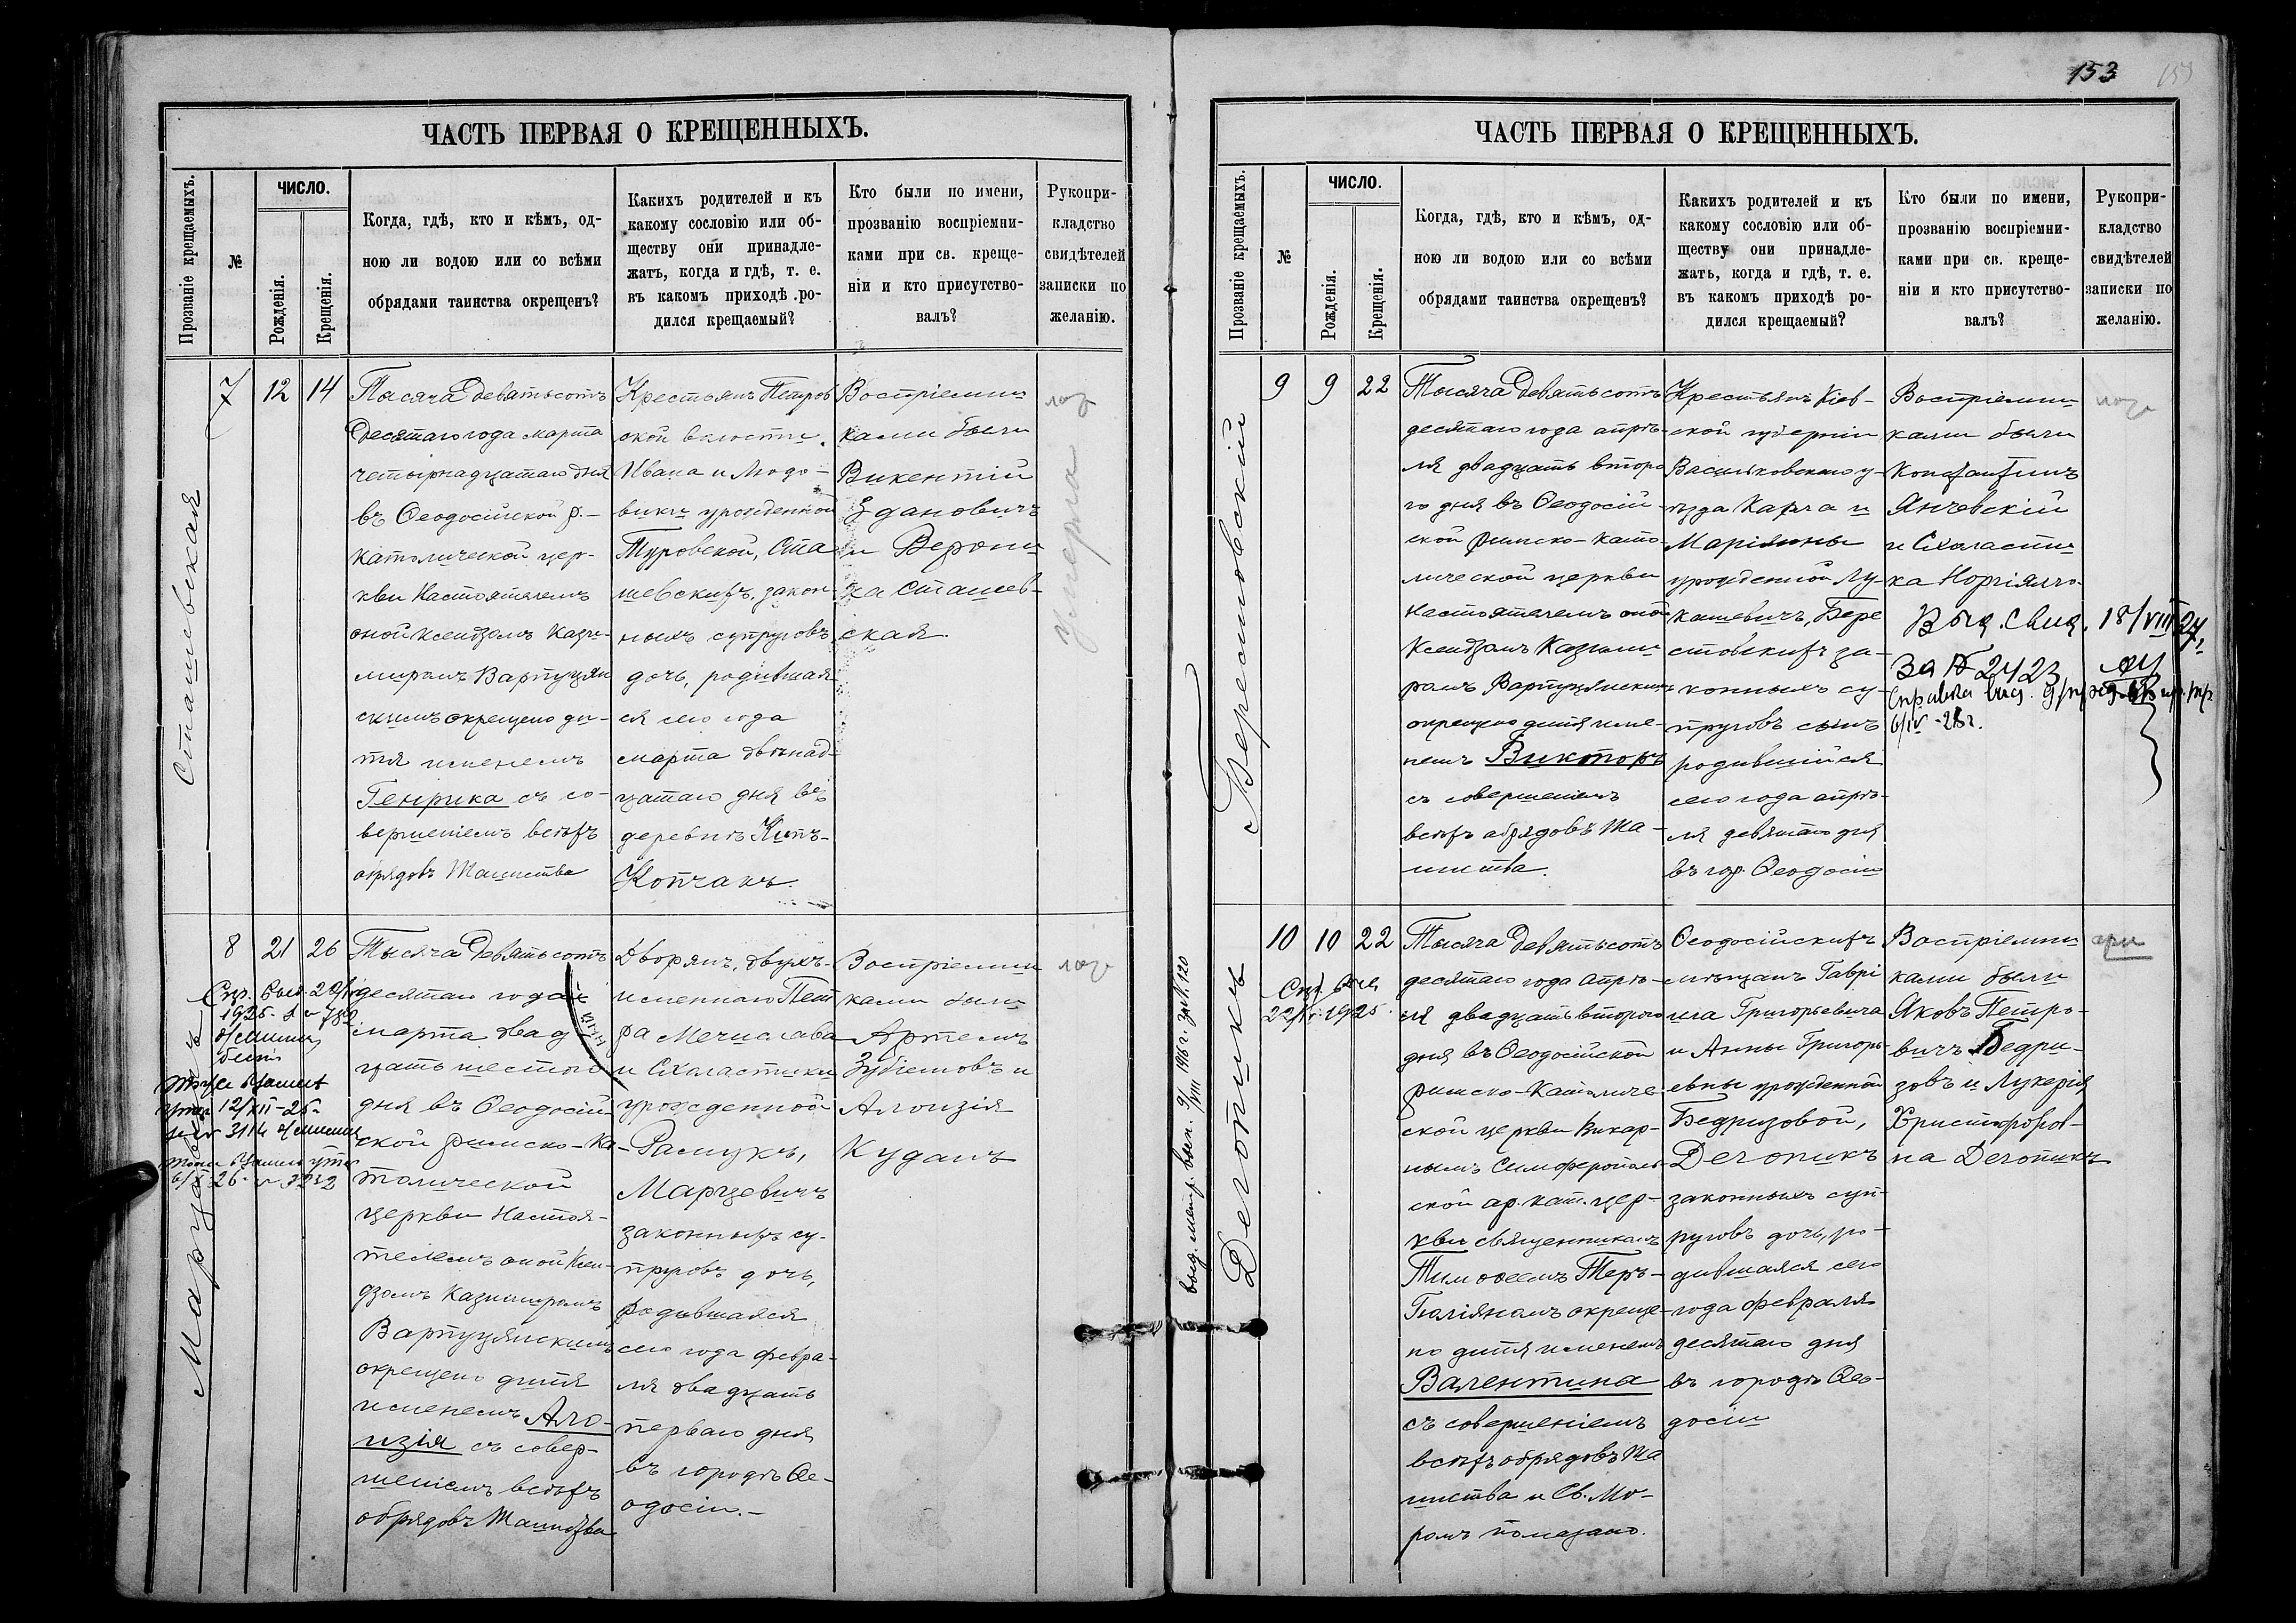 ЧАСТЬ ПЕРВАЯ О КРЕЩЕННЫХЪ.
Прозваніе крещаемыхъ.
№
ЧИСЛО.
Рожденія.
Крещенія.
Когда, гдѣ, кто и кѣмъ, од-
ною ли водою или со всѣми
обрядами таинства окрещенъ?
Какихъ родителей и къ
какому сословію или об-
ществу они принадле-
жатъ, когда и гдѣ, т. е.
въ какомъ приходѣ ро-
дился крещаемый?
Кто были по имени,
прозванію воспріемни-
ками при св. креще-
ніи и кто присутство-
валъ?
Рукопри-
кладство
свидѣтелей
записки по
желанію.
Сташевская
7
12
14
Тысяча девятьсотъ
десятаго года марта
четырнадцатаго дня
въ Ѳеодосійской р.-
католической цер-
кви Настоятелемъ
оной Ксендзомъ Кази-
миромъ Вартуцян
скимъ окрещено ди-
тя именемъ
Генрика съ со-
вершеніемъ всѣхъ
обрядовъ Таинства
Крестьянъ Петров
ской волости,
Ивана и Людо-
вики урожденной
Туровской, Ста
шевскихъ, закон-
ныхъ супруговъ
дочь, родившая-
ся сего года
марта двѣнад-
цатаго дня въ
деревнѣ Кипъ-
Копчакъ.
Воспріемни-
ками были
Викентій
Здановичъ
и Верони-
ка Сташев-
ская.
умерла
Марцевичъ
8
21
26
Тысяча девятьсотъ
десятаго года
марта двад
цать шестого
дня въ Ѳеодосій-
ской римско-ка-
толической
церкви Настоя-
телемъ оной Ксен-
дзомъ Казимиромъ
Вартуцянскимъ
окрещено дитя
именемъ Ало-
изія съ совер-
шеніемъ всѣхъ
обрядовъ Таинства
Дворянъ, двухъ-
именнаго Пет
ра Мечислава
и Схоластики
урожденной
Рамукъ,
Марцевичъ
законныхъ су-
пруговъ дочь,
родившаяся
сего года февра-
ля двадцать
перваго дня
въ городѣ Ѳе-
одосіи.-
Воспріемни
ками были
Артемъ
Зубіетовъ и
Алоизія
Куданъ
153
ЧАСТЬ ПЕРВАЯ О КРЕЩЕННЫХЪ.
Прозваніе крещаемыхъ.
№
ЧИСЛО.
Рожденія.
Крещенія.
Когда, гдѣ, кто и кѣмъ, од-
ною ли водою или со всѣми
обрядами таинства окрещенъ?
Какихъ родителей и къ
какому сословію или об-
ществу они принадле-
жатъ, когда и гдѣ, т. е.
въ какомъ приходѣ ро-
дился крещаемый?
Кто были по имени,
прозванію воспріемни-
ками при св. креще-
ніи и кто присутство-
валъ?
Рукопри-
кладство
свидѣтелей
записки по
желанію.
Берестовскій
9
9
22
Тысяча девятьсотъ
десятаго года апрѣ-
ля двадцать второ
го дня въ Ѳеодосій-
ской римско-като-
лической церкви
настоятелемъ оной
Ксендзомъ Казими-
ромъ Вартуцянскимъ
окрещено дитя име-
немъ Викторъ
съ совершеніемъ
всѣхъ обрядовъ Та-
инства.
Крестьянъ Кіев-
ской губерніи
Васильковскаго у-
ѣзда Карла и
Маріянны
урожденной Лу-
кашевичъ, Бере
стовскихъ за-
конныхъ су-
пруговъ сынъ
родившійся
сего года апрѣ-
ля девятаго дня
въ гор. Ѳеодосіи
Воспріемни-
ками были
Константинъ
Янчевскій
и Схоласти-
ка
18/VIII 24,
За № 2423
6/IV-28г.
Дегопикъ
10
10
22
22/IV 1925.
Тысяча девятьсотъ
десятаго года апрѣ-
ля двадцать второго
дня въ Ѳеодосійской
римско-Католиче-
ской церкви Викар-
нымъ Симферополь-
ской ар. кат. цер-
кви священникомъ
Тимоѳеемъ Теръ-
окреще-
но дитя именемъ
Валентина
съ совершеніемъ
всѣхъ обрядовъ Та
инства и Св. Мѵ-
ромъ помазано.
Ѳеодосійскихъ
мѣщанъ Гаврі
ила Григорьевича
и Анны Григорь-
евны урожденной
Бедризовой,
Дегопикъ
законныхъ суп-
руговъ дочь, ро-
дившаяся сего
года февраля
десятаго дня
въ городѣ Ѳео-
досіи
Воспріемни-
ками были
Яковъ Петро-
вичъ Бедри-
зовъ и Лукерія
Христофоров-
на Дегопикъ